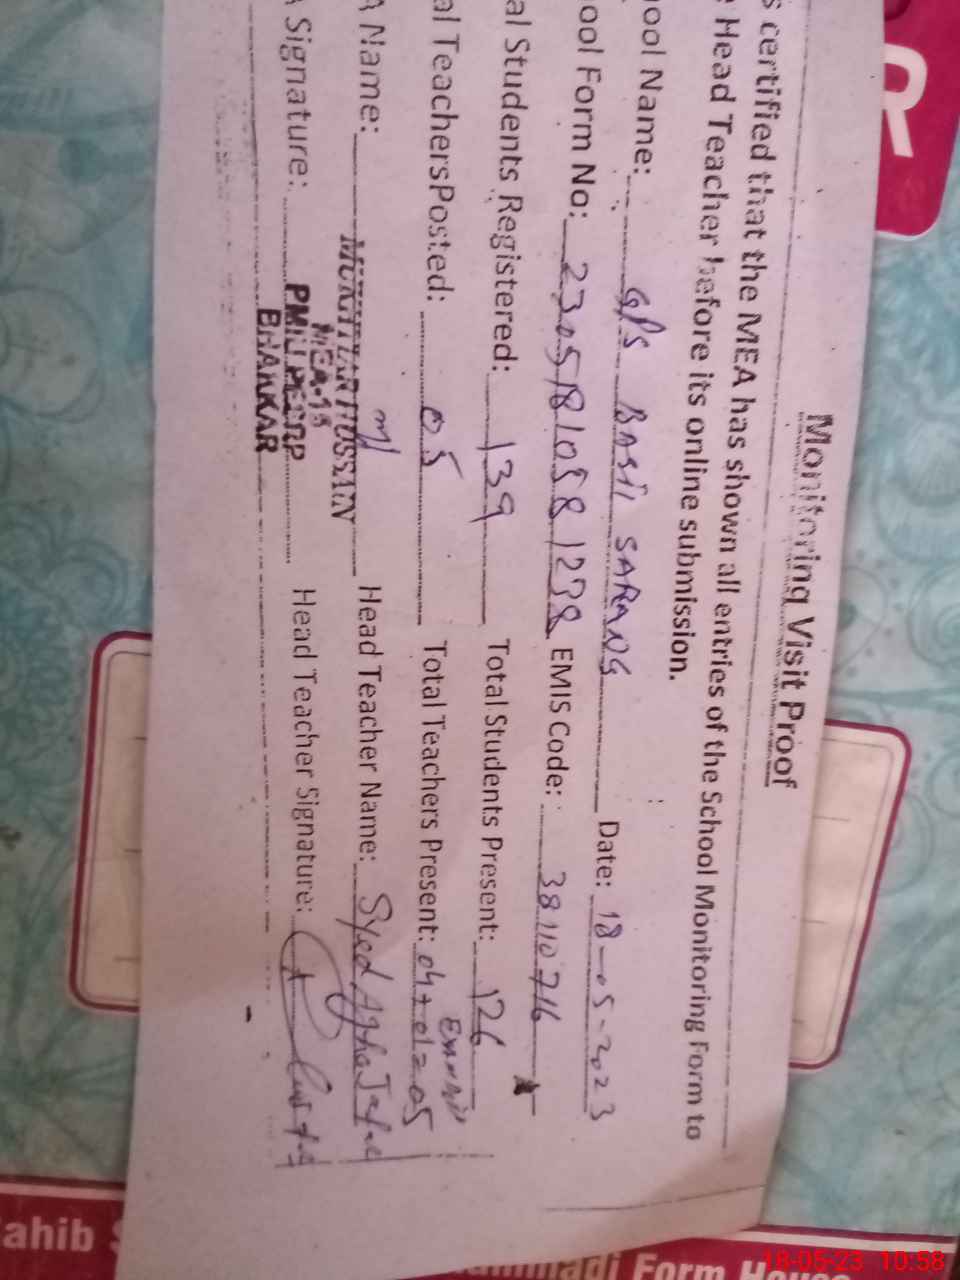 Monitoring Visit Proof
s certified that the MEA has shown all entries of the School Monitoring Form to
e Head Teacher before its online submission.
ool Name: GPS BASTI SARANG Date: 18-05-2023
ool Form No: 2305181058 1238 EMIS Code: 38110716
al Students Registered: 139 Total Students Present: 126
al TeachersPosted: 05 Total Teachers Present: 04+01=05
A Name: MUKHTIAR HUSSAIN Head Teacher Name: Syed Agha
MEA-15
A Signature: PMIU PESRP Head Teacher Signature:
BHAKKAR
R
ahib S
madi Form Ho
18-05-23 10:58